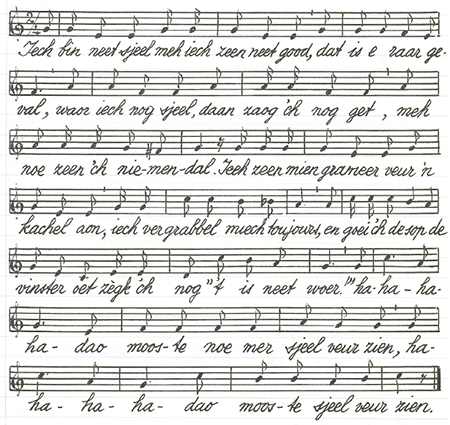 Iech bin neet sjeel meh iech zeen neet good, dat is e raar ge-
val, waor iech nog sjeel, daan zaog 'ch nog get, meh
noe zeen 'ch nie-men-dal. Iech zeen mien grameer veur 'n
kachel aon, iech vergrabbel miech toujours, en goei 'ch de sop de
vinster oét zègk 'ch nog "'t is neet woer!" ha-ha-ha-
ha- dao moos-te noe mer sjeel veur zien, ha-
ha-ha-ha-dao moos-te sjeel veur zien.